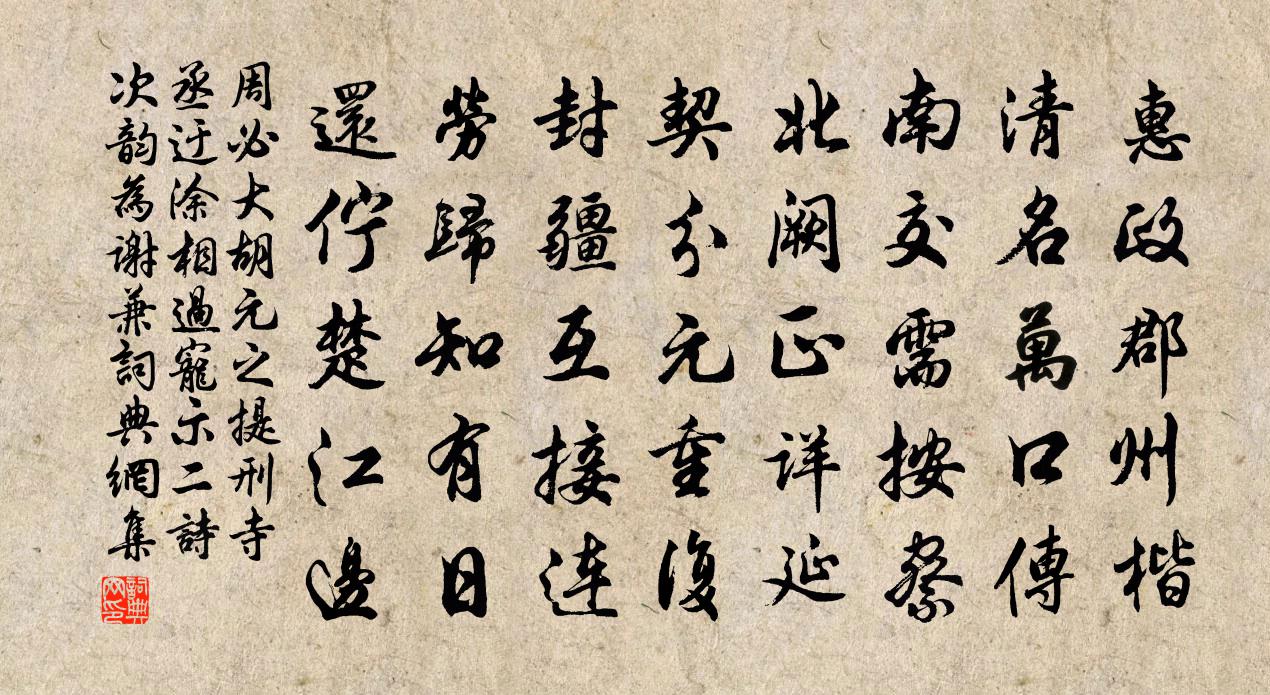 惠政郡州楷
清名萬口傳
南交需按察
北闕正詳延
契分元重復
封疆互接連
勞歸知有日
還佇楚江邊
周必大胡元之提刑寺
丞迂涂相過寵示二詩
次韵為谢兼詞典網集
詞典網印